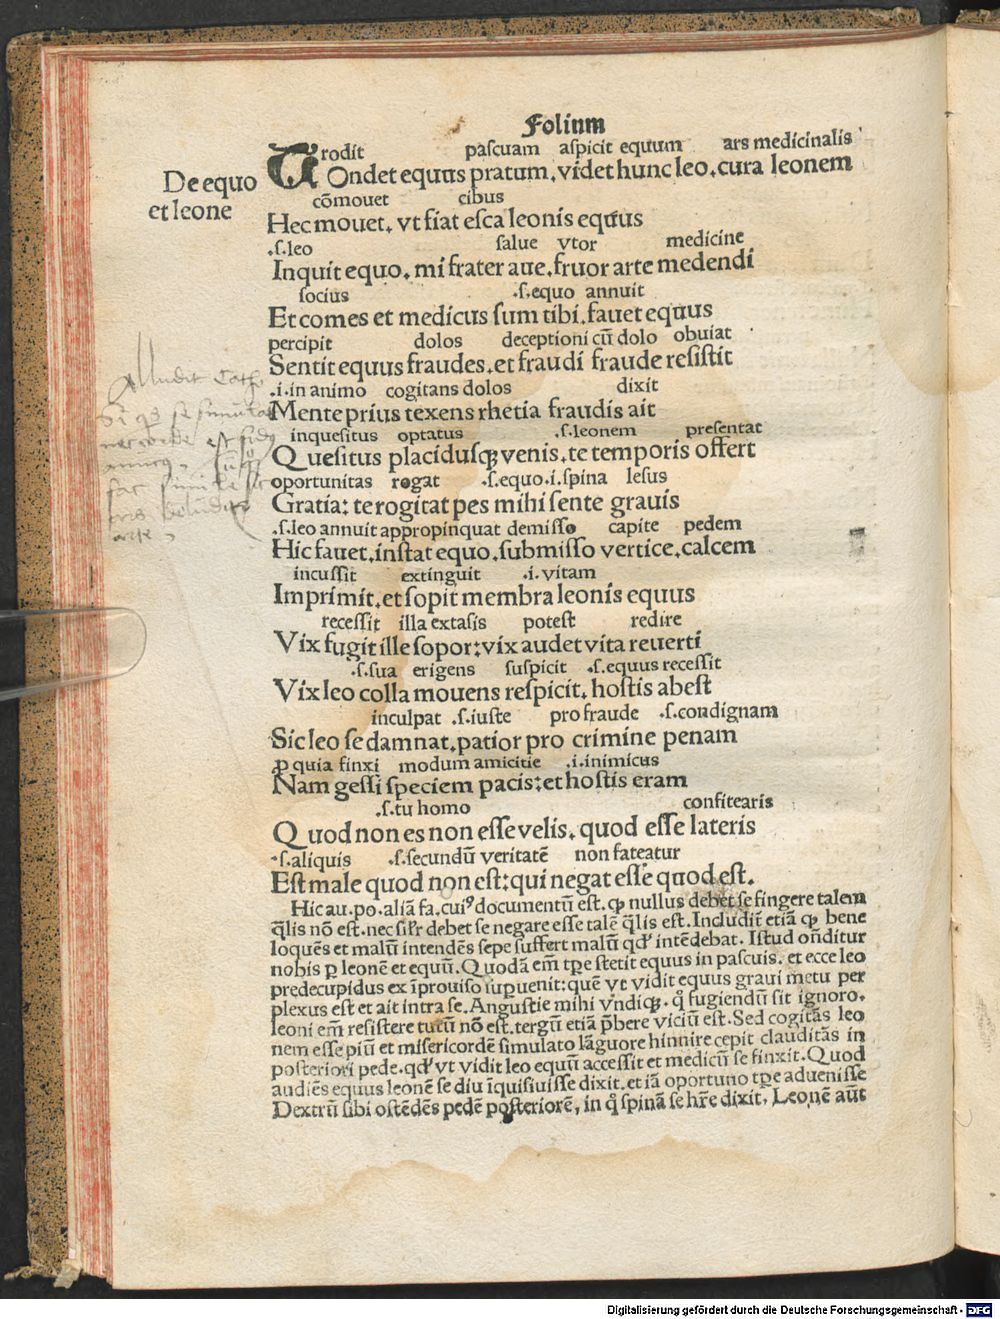 Folium
rodit pascuam aspicit equum ars medicinalis
TOndet equus pratum. videt hunc leo. cura leonem
De equo
et leone
cōmouet cibus
Hec mouet. vt fiat esca leonis equus
.s. leo salue vtor medicine
Inquit equo. mi frater aue. fruor arte medendi
socius .s. equo annuit
Et comes et medicus sum tibi. fauet equus
percipit dolos deceptioni cū dolo obuiat
Sentit equus fraudes. et fraudi fraude resistit
.i. in animo cogitans dolos dixit
Mente prius texens rhetia fraudis ait
inquesitus optatus .s. leonem presentat
Quesitus placidusqꝫ venis. te temporis offert
oportunitas rogat .s. equo .i. spina lesus
Gratia: te rogitat pes mihi sente grauis
.s. leo annuit appropinquat demisso capite pedem
Hic fauet. instat equo. submisso vertice. calcem
incussit extinguit .i. vitam
Imprimit. et sopit membra leonis equus
recessit illa extasis potest redire
Vix fugit ille sopor: vix audet vita reuerti
.s. sua erigens suspicit .s. equus recessit
Vix leo colla mouens respicit. hostis abest
inculpat .s. iuste pro fraude .s. condignam
Sic leo se damnat. patior pro crimine penam
ꝓ quia finxi modum amicitie .i. inimicus
Nam gessi speciem pacis: et hostis eram
.s. tu homo confitearis
Quod non es non esse velis. quod esse lateris
.s. aliquis .s. secundū veritatē non fateatur
Est male quod non est: qui negat esse quod est.
Hic au. po. aliā fa. cuiꝰ documentū est. ꝙ nullus debet se fingere talem
q̄lis nō est. nec sil'r debet se negare esse talē q̄lis est. Includit̄ etiā ꝙ bene
loquēs et malū intendēs sepe suffert malū qd' intēdebat. Istud ōnditur
nobis ꝑ leonē et equū. Quodā em̄ tp̄e stetit equus in pascuis. et ecce leo
predecupidus ex īprouiso suꝑuenit: quē vt vidit equus graui metu per
plexus est et ait intra se. Angustie mihi vndiqꝫ. q̊ fugiendū sit ignoro.
leoni em̄ resistere tutū nō est. tergū etiā p̄bere viciū est. Sed cogitās leo
nem esse piū et misericordē simulato lāguore hinnire cepit clauditās in
posteriori pede. qd' vt vidit leo equū accessit et medicū se finxit. Quod
audiēs equus leonē se diu īquisiuisse dixit. et iā oportuno tp̄e aduenisse
Dextrū sibi ostēdēs pedē posteriorē, in q̊ spinā se hr̄e dixit. Leonē aūt
Digitalisierung gefördert durch die Deutsche Forschungsgemeinschaft - DFG